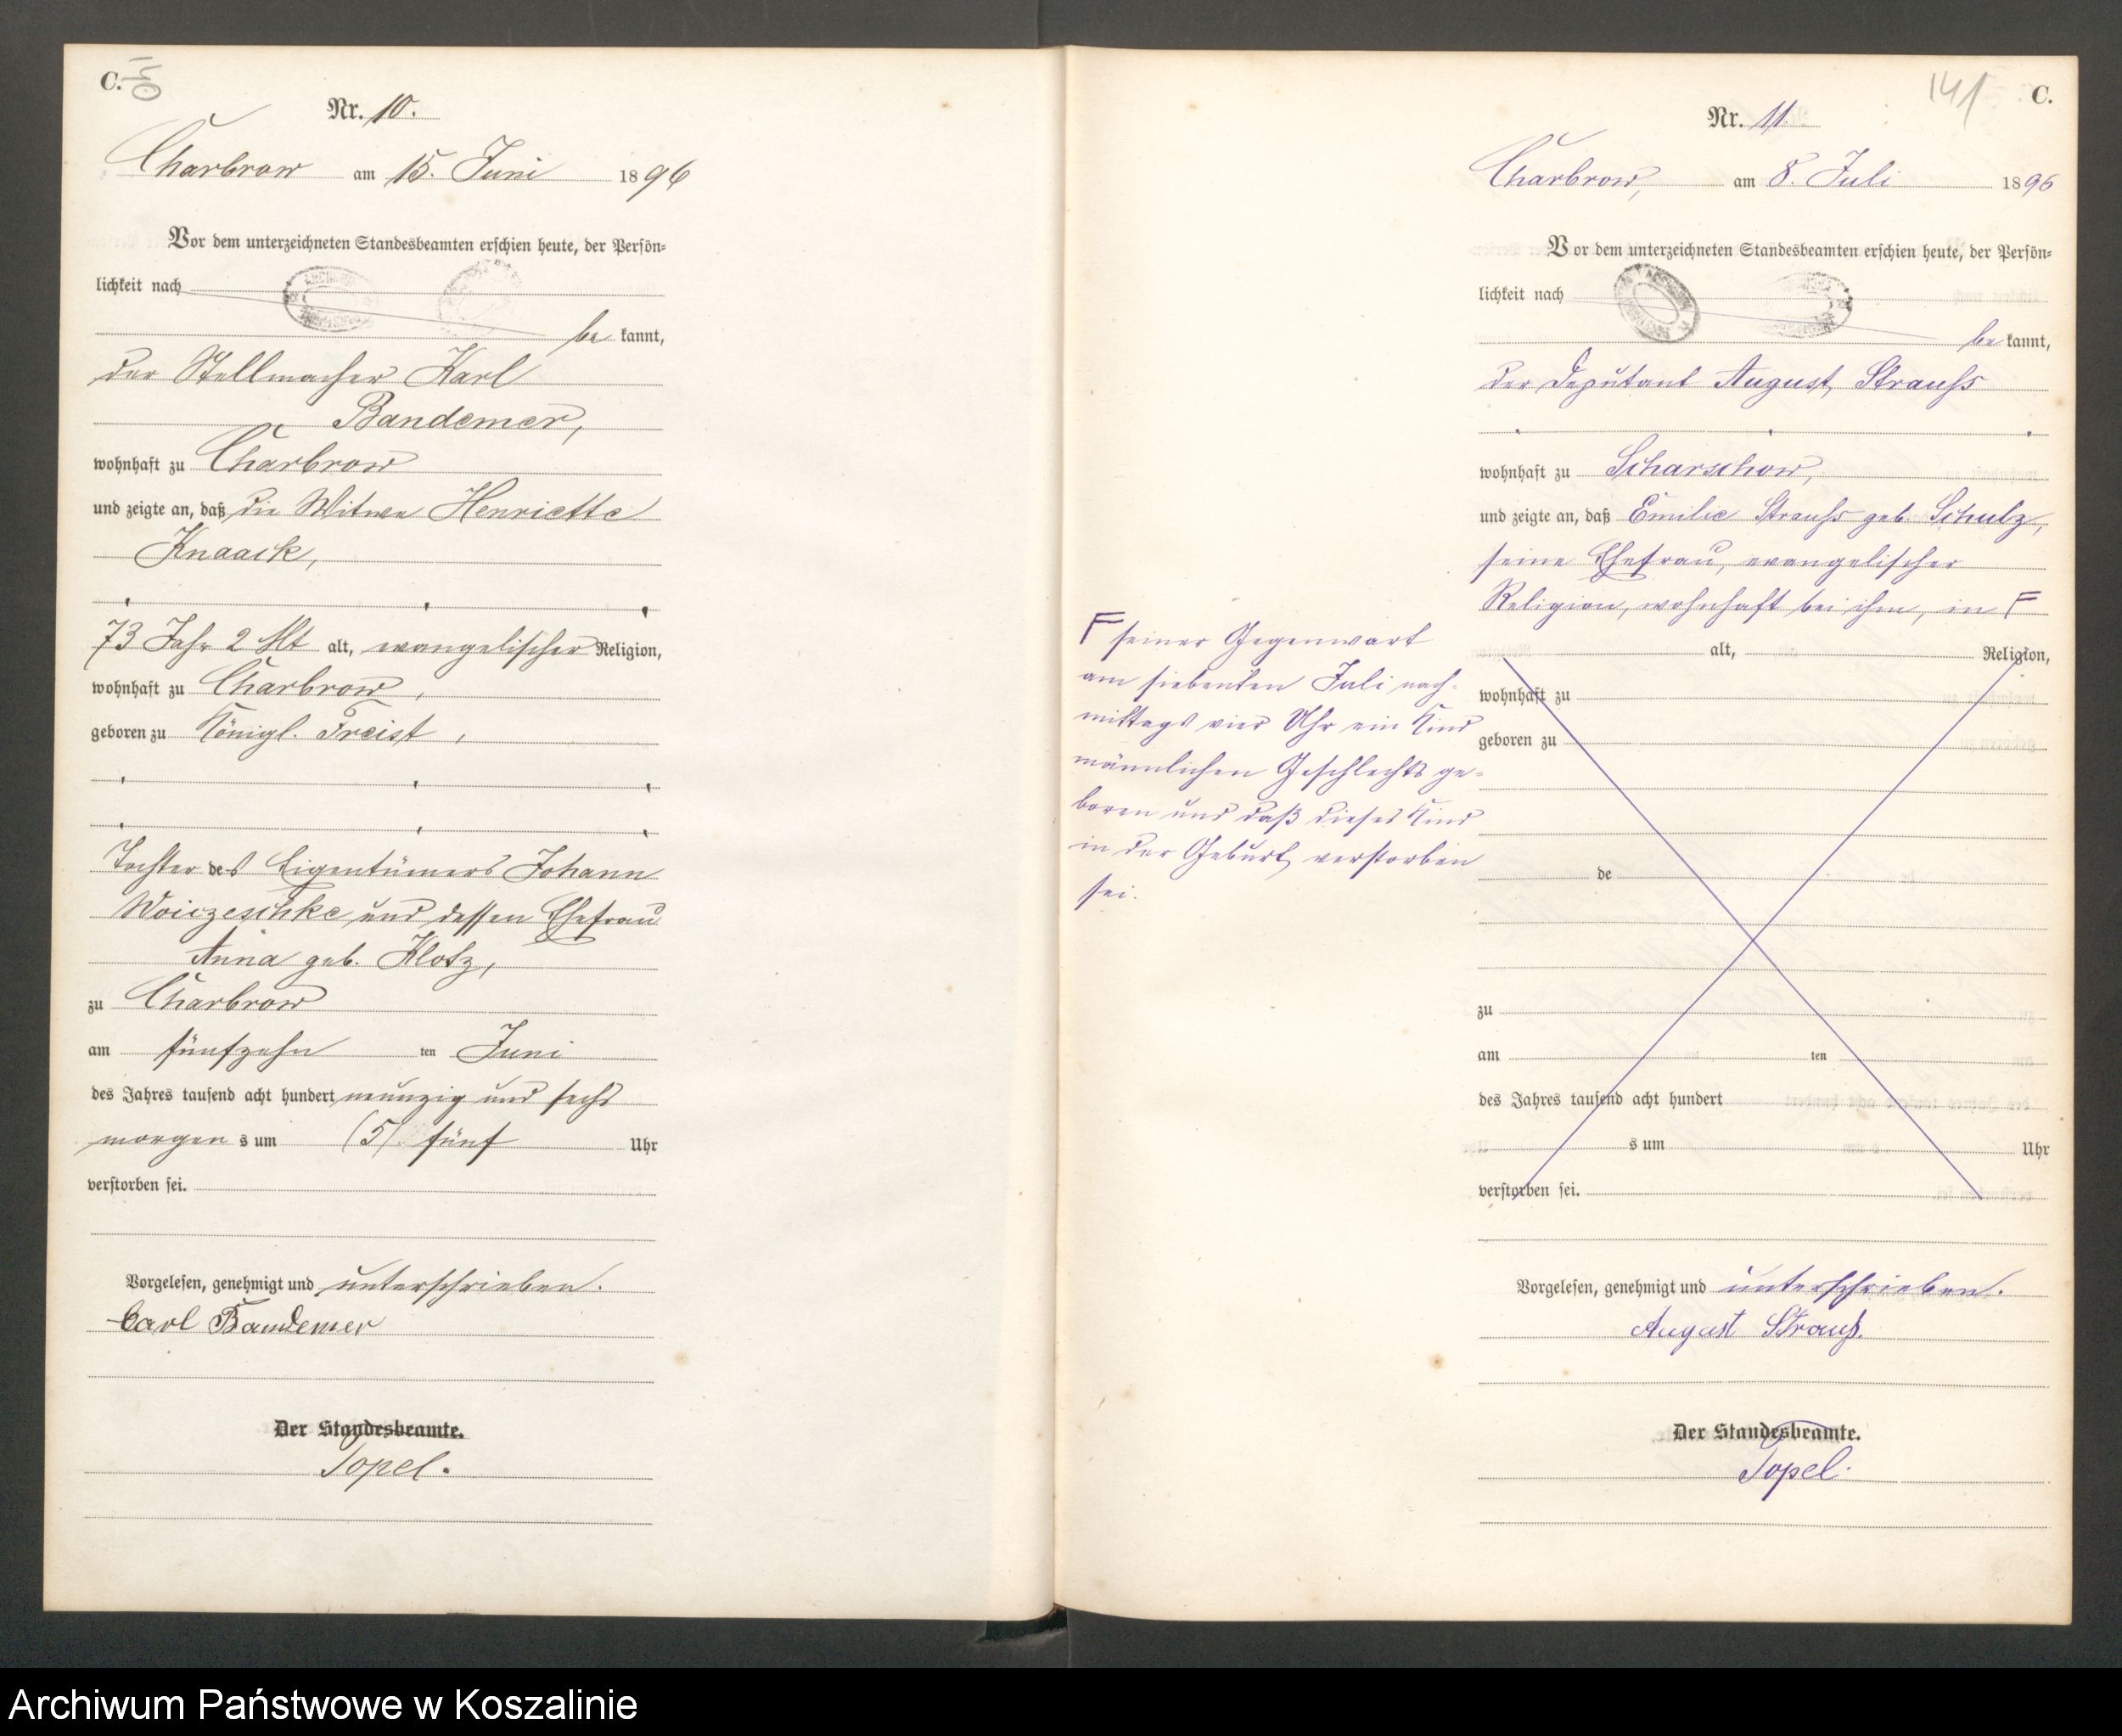 C.
140
Nr. 10.
Charbrow am 15. Juni 1896
Vor dem unterzeichneten Standesbeamten erschien heute, der Persön-
lichkeit nach
be kannt,
der Stellmacher Karl
Bandemer,
wohnhaft zu Charbrow
und zeigte an, daß die Witwe Henriette
Knaack,
73 Jahr 2 Mt alt, evangelischer Religion,
wohnhaft zu Charbrow,
geboren zu Königl. Freist,
Tochter des Eigentümers Johann
Woiczeschke und dessen Ehefrau
Anna geb. Klotz,
zu Charbrow
am fünfzehn ten Juni
des Jahres tausend acht hundert neunzig und sechs
morgen s um (5) fünf Uhr
verstorben sei.
Vorgelesen, genehmigt und unterschrieben.
Carl Bandemer
Der Standesbeamte.
Topel.
141 C.
Nr. 11.
Charbrow, am 8. Juli 1896
Vor dem unterzeichneten Standesbeamten erschien heute, der Persön-
lichkeit nach
be kannt,
der Deputant August Strauß
wohnhaft zu Scharschow,
und zeigte an, daß Emilie Strauß geb. Schulz,
seine Ehefrau, evangelischer
Religion, wohnhaft bei ihm, in F
F seiner Gegenwart
am siebenten Juli nach-
mittags vier Uhr ein Kind
männlichen Geschlechts ge-
boren und daß dieses Kind
in der Geburt verstorben
sei.
alt, Religion,
wohnhaft zu
geboren zu
de
zu
am ten
des Jahres tausend acht hundert
s um Uhr
verstorben sei.
Vorgelesen, genehmigt und unterschrieben.
August Strauß.
Der Standesbeamte.
Topel.
Archiwum Państwowe w Koszalinie